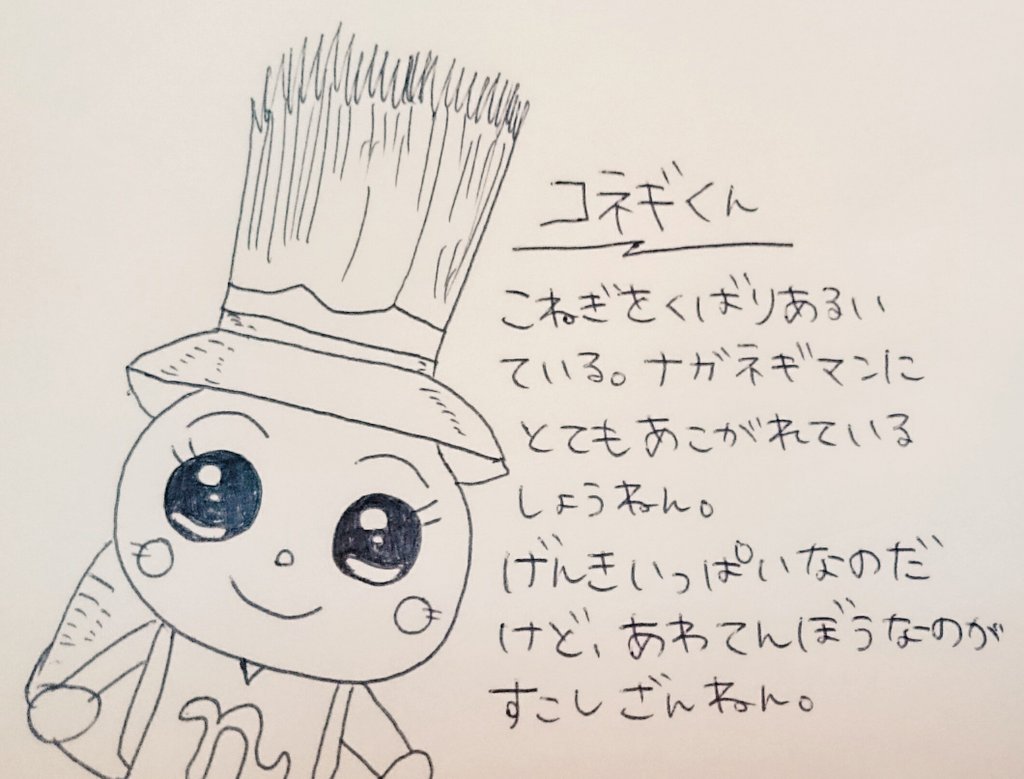 コネギくん
こねぎをくばりあるい
ている。ナガネギマンに
とてもあこがれている
しょうねん。
げんきいっぱいなのだ
けど、あわてんぼうなのが
すこしざんねん。
n